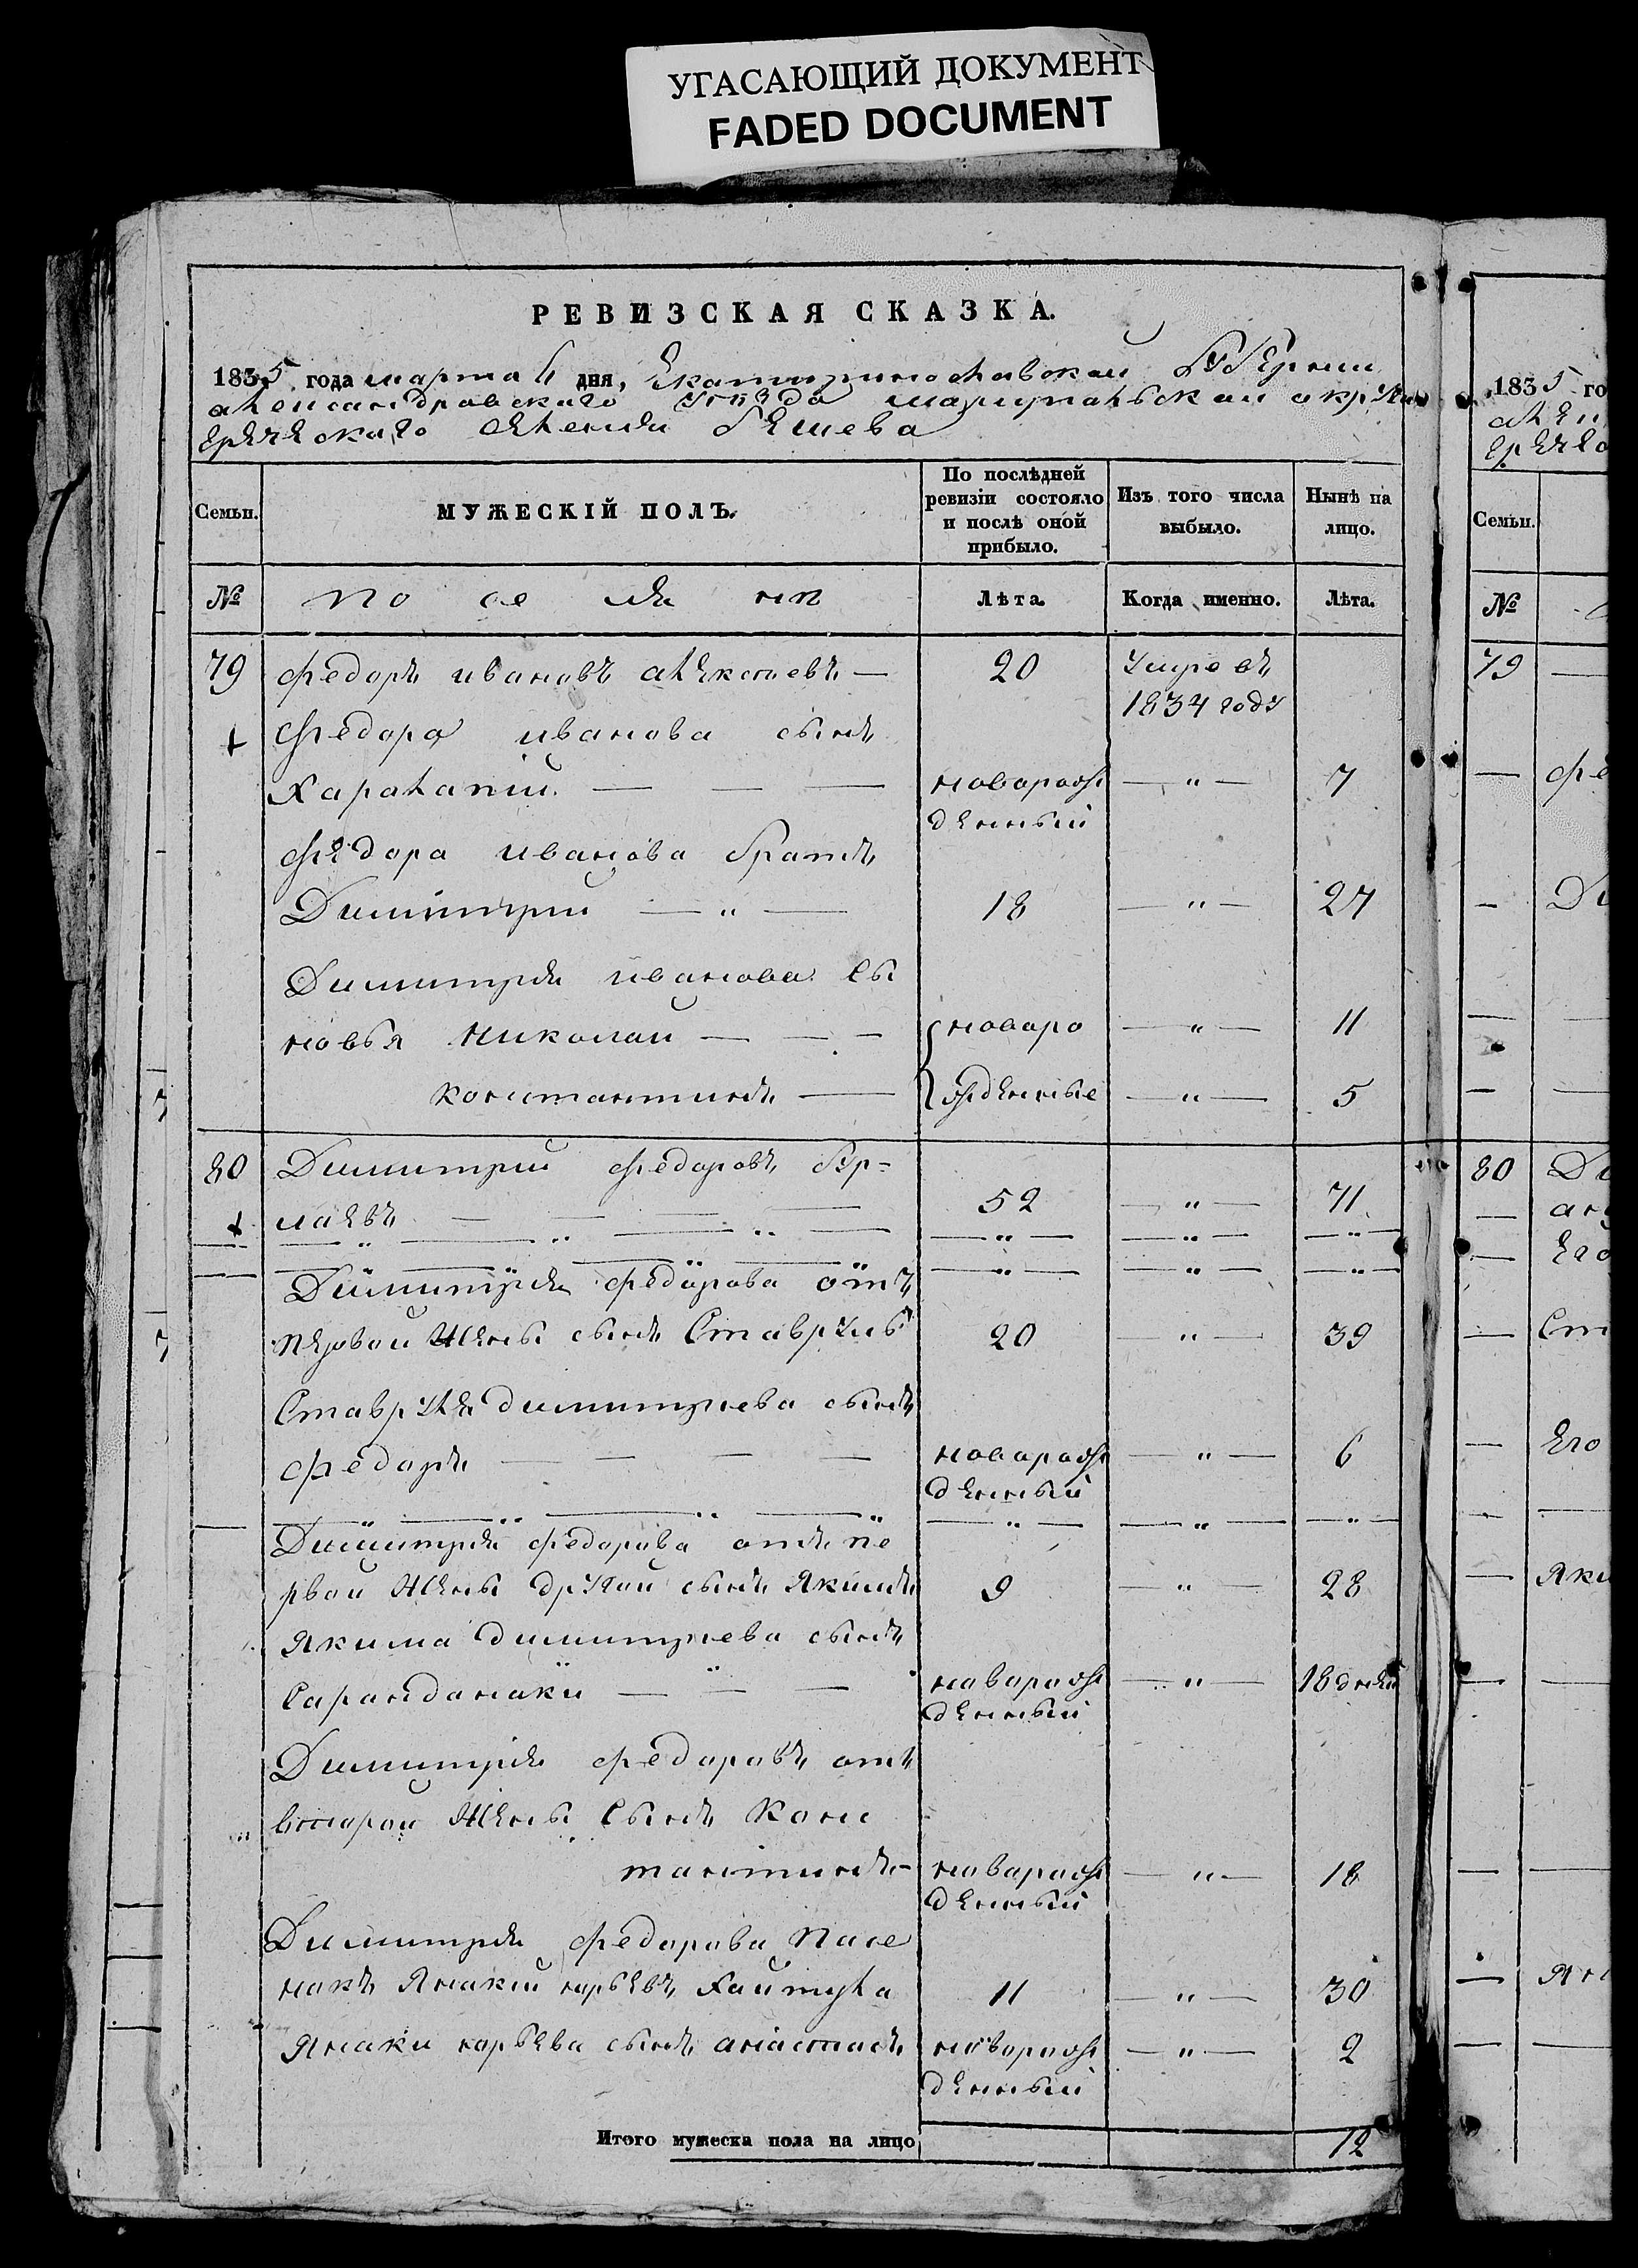 УГАСАЮЩИЙ ДОКУМЕНТ
FADED DOCUMENT
РЕВИЗСКАЯ СКАЗКА.
1835 года марта дня, Екатиринославской Губернии
александравскаго уезда мариупальской округи
греческаго селения Бешева
Семьи. МУЖЕСКІЙ ПОЛЪ. По послѣдней ревизіи состояло и послѣ оной прибыло. Изъ того числа выбыло. Нынѣ на лицо.
№ по се ля не Лѣта. Когда именно. Лѣта.
79 федоръ ивановъ — 20 Умре въ
1834 году
Федора иванова сынъ
Харалапий — — — навараж — " — 7
денный
Федора иванова братъ
Димитрий — " — 18 — " — 27
Димитрия иванова сы
новья николай — — новаро — " — 11
константинъ — жденные — " — 5
80 Димитрий федоровъ Бур-
лаевъ 52 — " — 71
Димитрия федорова отъ
первой жены сынъ Ставрулъ 20 — " — 39
Ставруля димитриева сынъ
федоръ — — — — навараж — " — 6
денный
Димитрия федорова отъ пе
рвой жены другой сынъ Якимъ 9 — " — 28
Якима димитриева сынъ
Сарандонаки — — — навараж — " — 18 дней
денный
Димитрия федоровъ отъ
второй жены Сынъ Конс
тантинъ - навараж — " — 18
денный
Димитрия федорова Пасе
накъ Янакий Хаитула 11 — " — 30
Янаки сынъ анастасъ навараж — " — 2
денный
Итого мужеска пола на лицо 12
1835 го
Семьи.
№
79 —
— фе
— Ди
80 Ди
— Его
— Ст
— Его
— Яки
— Ян